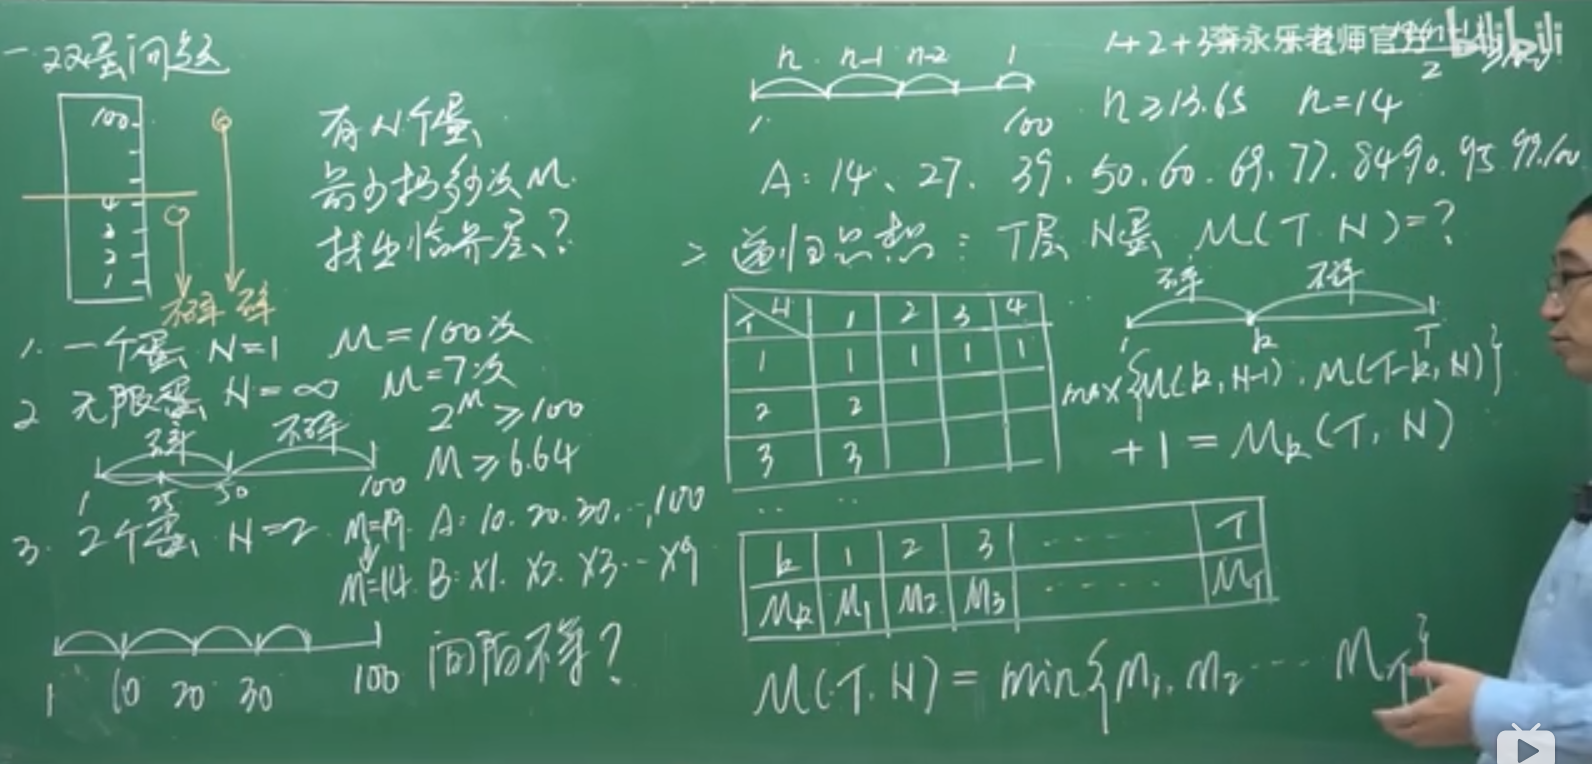 一. 双蛋问题
100
4
3
2
1
不碎 碎
有N个蛋
最少扔多少次M.
找出临界层?
1. 一个蛋 N=1 M=100次
2 无限蛋 N=∞ M=7次
2^M ≥100
M≥6.64
碎 不碎
1 25 50 100
3. 2个蛋 N=2 M=19. A: 10. 20. 30. ..., 100
M=14. B: X1. X2. X3 ... X9
1 10 20 30 100 间隔不等?
n n-1 n-2 1
1 100
1+2+3
2
李永乐老师官方 bilibili
n≥13.65 n=14
A: 14、27、39、50、60、69、77、84、90、95、99、100
二 递归思想: T层 N蛋 M(T.N)=?
T N 1 2 3 4
1 1 1 1 1
2 2
3 3
碎 不碎
1 k T
max{M(k,N-1), M(T-k,N)}
+1 = Mk(T,N)
k 1 2 3 ------ T
Mk M1 M2 M3 ------ MT
M(T.N) = min{M1, M2 ---- MT}